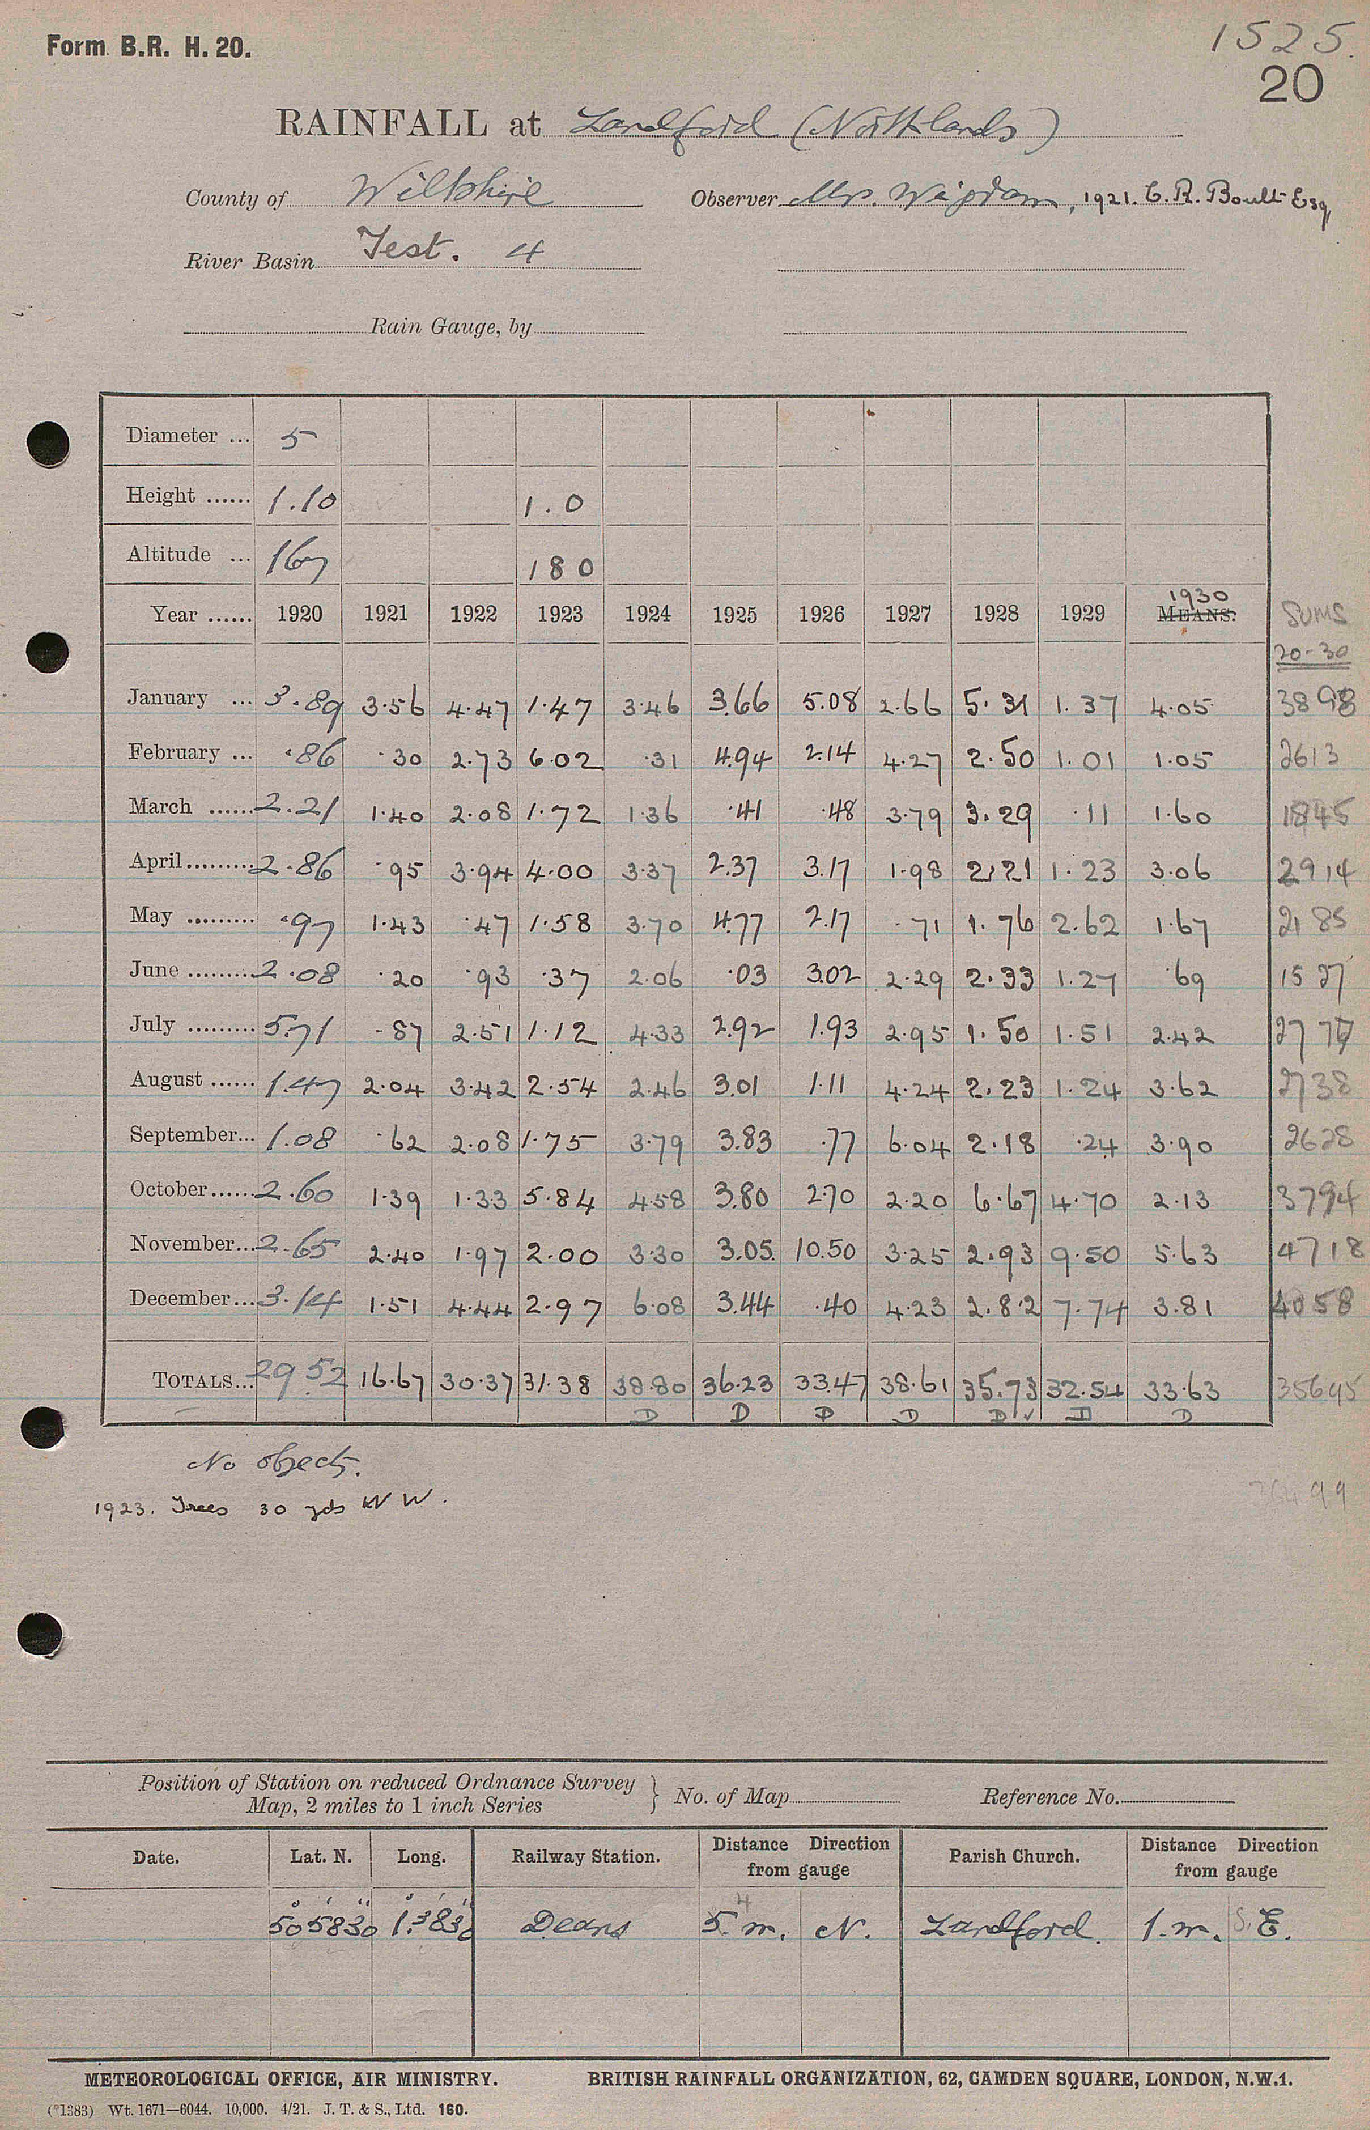 Form B.R. H. 20.
1525.
20
RAINFALL at Landford (Northlands)
County of Wiltshire Observer Mrs. Wigram, 1921. C. R. Boult Esq
River Basin Test. 4
Rain Gauge, by
Diameter ... 5
Height ...... 1.10 1.0
Altitude ... 167 180
1930
Year ...... 1920 1921 1922 1923 1924 1925 1926 1927 1928 1929 MEANS. SUMS
20-30
January ... 3.89 3.56 4.47 1.47 3.46 3.66 5.08 2.66 5.31 1.37 4.05 3898
February ... .86 .30 2.73 6.02 .31 4.94 2.14 4.27 2.50 1.01 1.05 2613
March ...... 2.21 1.40 2.08 1.72 1.36 .41 .48 3.79 3.29 .11 1.60 1845
April ......... 2.86 .95 3.94 4.00 3.37 2.37 3.17 1.98 2.21 1.23 3.06 2914
May ......... .97 1.43 .47 1.58 3.70 4.77 2.17 .71 1.76 2.62 1.67 2185
June ......... 2.08 .20 .93 .37 2.06 .03 3.02 2.29 2.33 1.27 .69 1527
July ......... 5.71 .87 2.51 1.12 4.33 2.92 1.93 2.95 1.50 1.51 2.42 2777
August ...... 1.47 2.04 3.42 2.54 2.46 3.01 1.11 4.24 2.23 1.24 3.62 2738
September... 1.08 .62 2.08 1.75 3.79 3.83 .77 6.04 2.18 .24 3.90 2628
October...... 2.60 1.39 1.33 5.84 4.58 3.80 2.70 2.20 6.67 4.70 2.13 3794
November... 2.65 2.40 1.97 2.00 3.30 3.05 10.50 3.25 2.93 9.50 5.63 4718
December... 3.14 1.51 4.44 2.97 6.08 3.44 .40 4.23 2.82 7.74 3.81 4058
TOTALS... 29.52 16.67 30.37 31.38 38.80 36.23 33.47 38.61 35.73 32.54 33.63 35695
D D D D D ✓ D D
No objects.
1923. Trees 30 yds NW.
Position of Station on reduced Ordnance Survey
Map, 2 miles to 1 inch Series } No. of Map Reference No.
Date. Lat. N. Long. Railway Station. Distance Direction from gauge Parish Church. Distance Direction from gauge
4
50° 58' 30" 1° 38' 30" Deans 5 m. N. Landford. 1. m. S. E.
METEOROLOGICAL OFFICE, AIR MINISTRY. BRITISH RAINFALL ORGANIZATION, 62, CAMDEN SQUARE, LONDON, N.W.1.
(*1383) Wt. 1671—6044. 10,000. 4/21. J. T. & S., Ltd. 160.